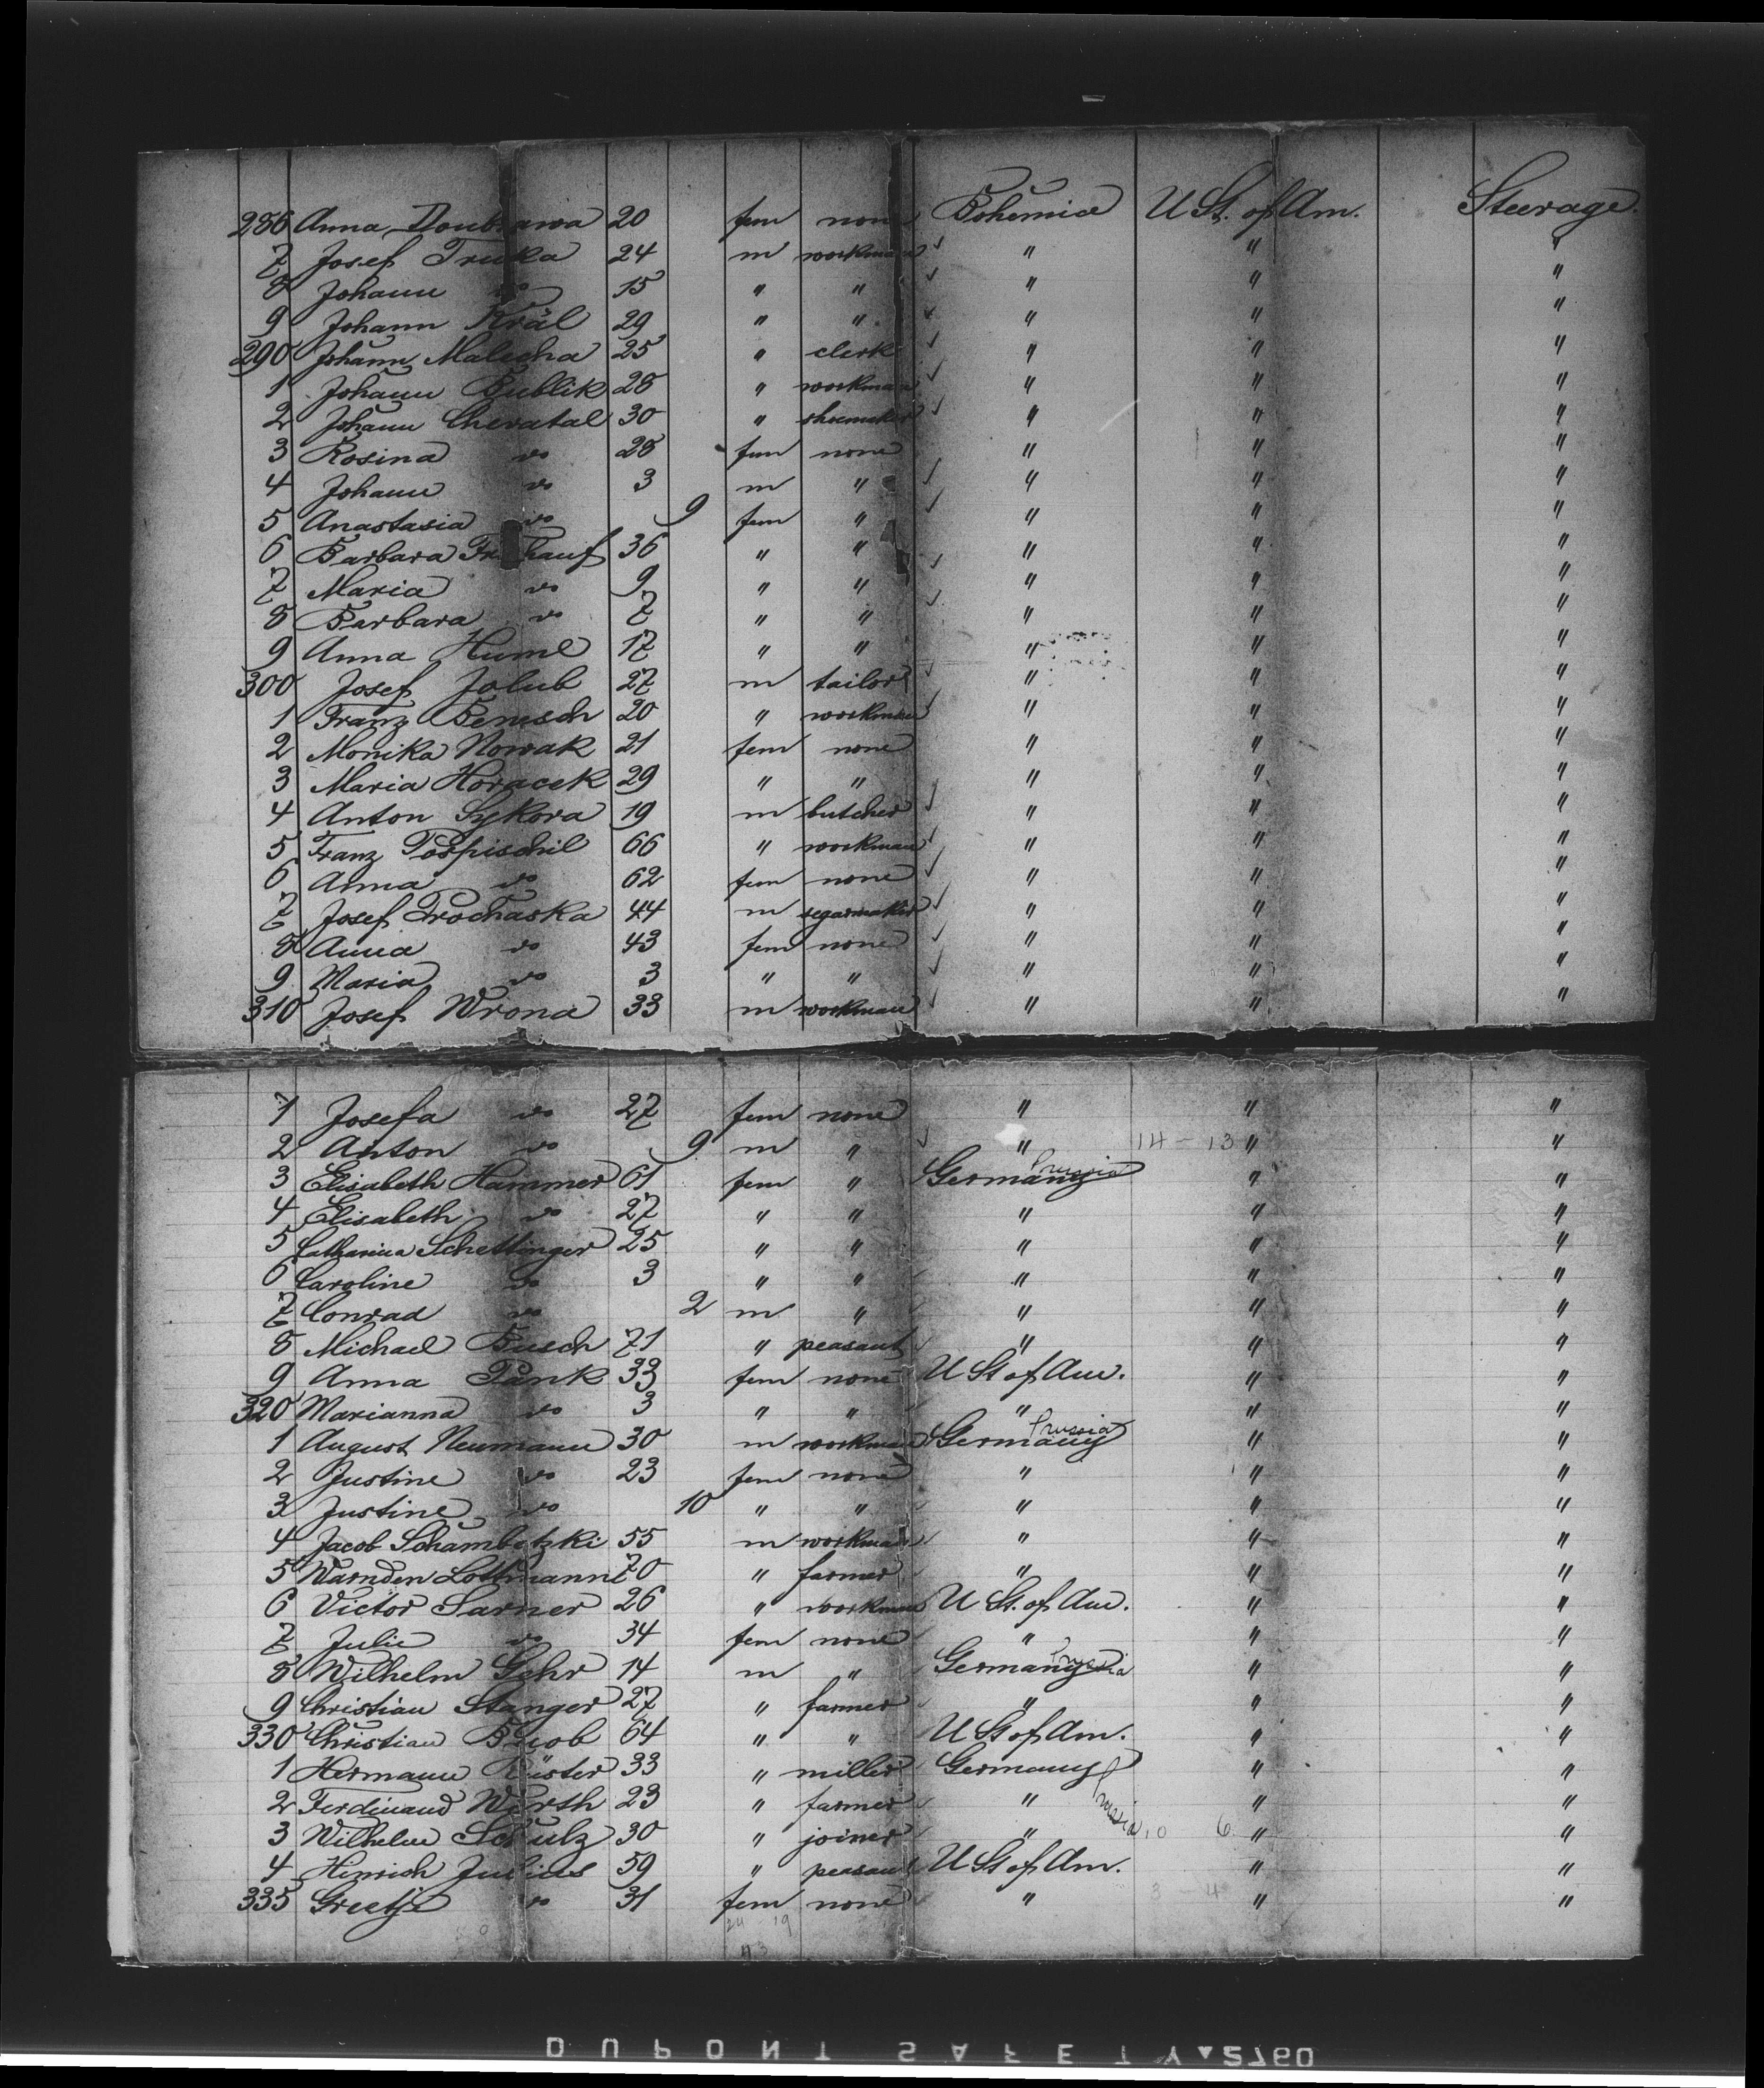 286 Anna Doubrawa 20 fem none Bohemia U St. of Am. Steerage.
7 Josef Truka 24 m workman ✓ " " "
8 Johann do 15 " " ✓ " " "
9 Johann Král 29 " " ✓ " " "
290 Johann Malecha 25 " clerk ✓ " " "
1 Johann Bublik 28 " workman ✓ " " "
2 Johann Chevatal 30 " shoemaker ✓ " " "
3 Rosina do 28 fem none " " "
4 Johann do 3 m " ✓ " " "
5 Anastasia do 9 fem " ✓ " " "
6 Barbara Fruhauf 36 " " " " "
7 Maria do 9 " " ✓ " " "
8 Barbara do 7 " " ✓ " " "
9 Anna Huml 17 " " " " "
300 Josef Jolub 27 m tailor ✓ " " "
1 Franz Bemsch 20 " workman ✓ " " "
2 Monika Nowak 21 fem none " " "
3 Maria Horacek 29 " " ✓ " " "
4 Anton Sykora 19 m butcher ✓ " " "
5 Franz Pospischil 66 " workman ✓ " " "
6 Anna do 62 fem none ✓ " " "
7 Josef Prochaska 44 m segarmaker ✓ " " "
8 Anna do 43 fem none ✓ " " "
9 Maria do 3 " " ✓ " " "
310 Josef Wrona 33 m workman ✓ " " "
1 Josefa do 27 fem none " " "
2 Anton do 9 m " ✓ " 14 - 13 " "
3 Elisabeth Hammer 61 fem " Germany Prussia " "
4 Elisabeth do 27 " " " " "
5 Catharina Schettinger 25 " " " " "
6 Caroline do 3 " " " " "
7 Conrad do 2 m " " " "
8 Michael Busch 71 " peasant ✓ " " "
9 Anna Pank 33 fem none U St of Am. " "
320 Marianna do 3 " " " " "
1 August Neumann 30 m workman Germany Prussia " "
2 Justine do 23 fem none " " "
3 Justine do 10 " " " " "
4 Jacob Schambotzki 55 m workman " " "
5 Warnden Lottmann 70 " farmer " " "
6 Victor Sarner 26 " workman U St. of Am. " "
7 Julie do 34 fem none " " "
8 Wilhelm Gehr 14 m " Germany Prussia " "
9 Christian Stanger 27 " farmer " " "
330 Christian Buob 64 " " U St of Am. " "
1 Hermann Küster 33 " miller Germany " "
2 Ferdinand Wirth 23 " farmer " Prussia " "
3 Wilhelm Schulz 30 " joiner " 10 6 " "
4 Hinrich Julius 59 " peasant U St of Am. " "
335 Greetje do 31 fem none " 3 - 4 " "
24 19
43
DUPONT SAFETY▲2760